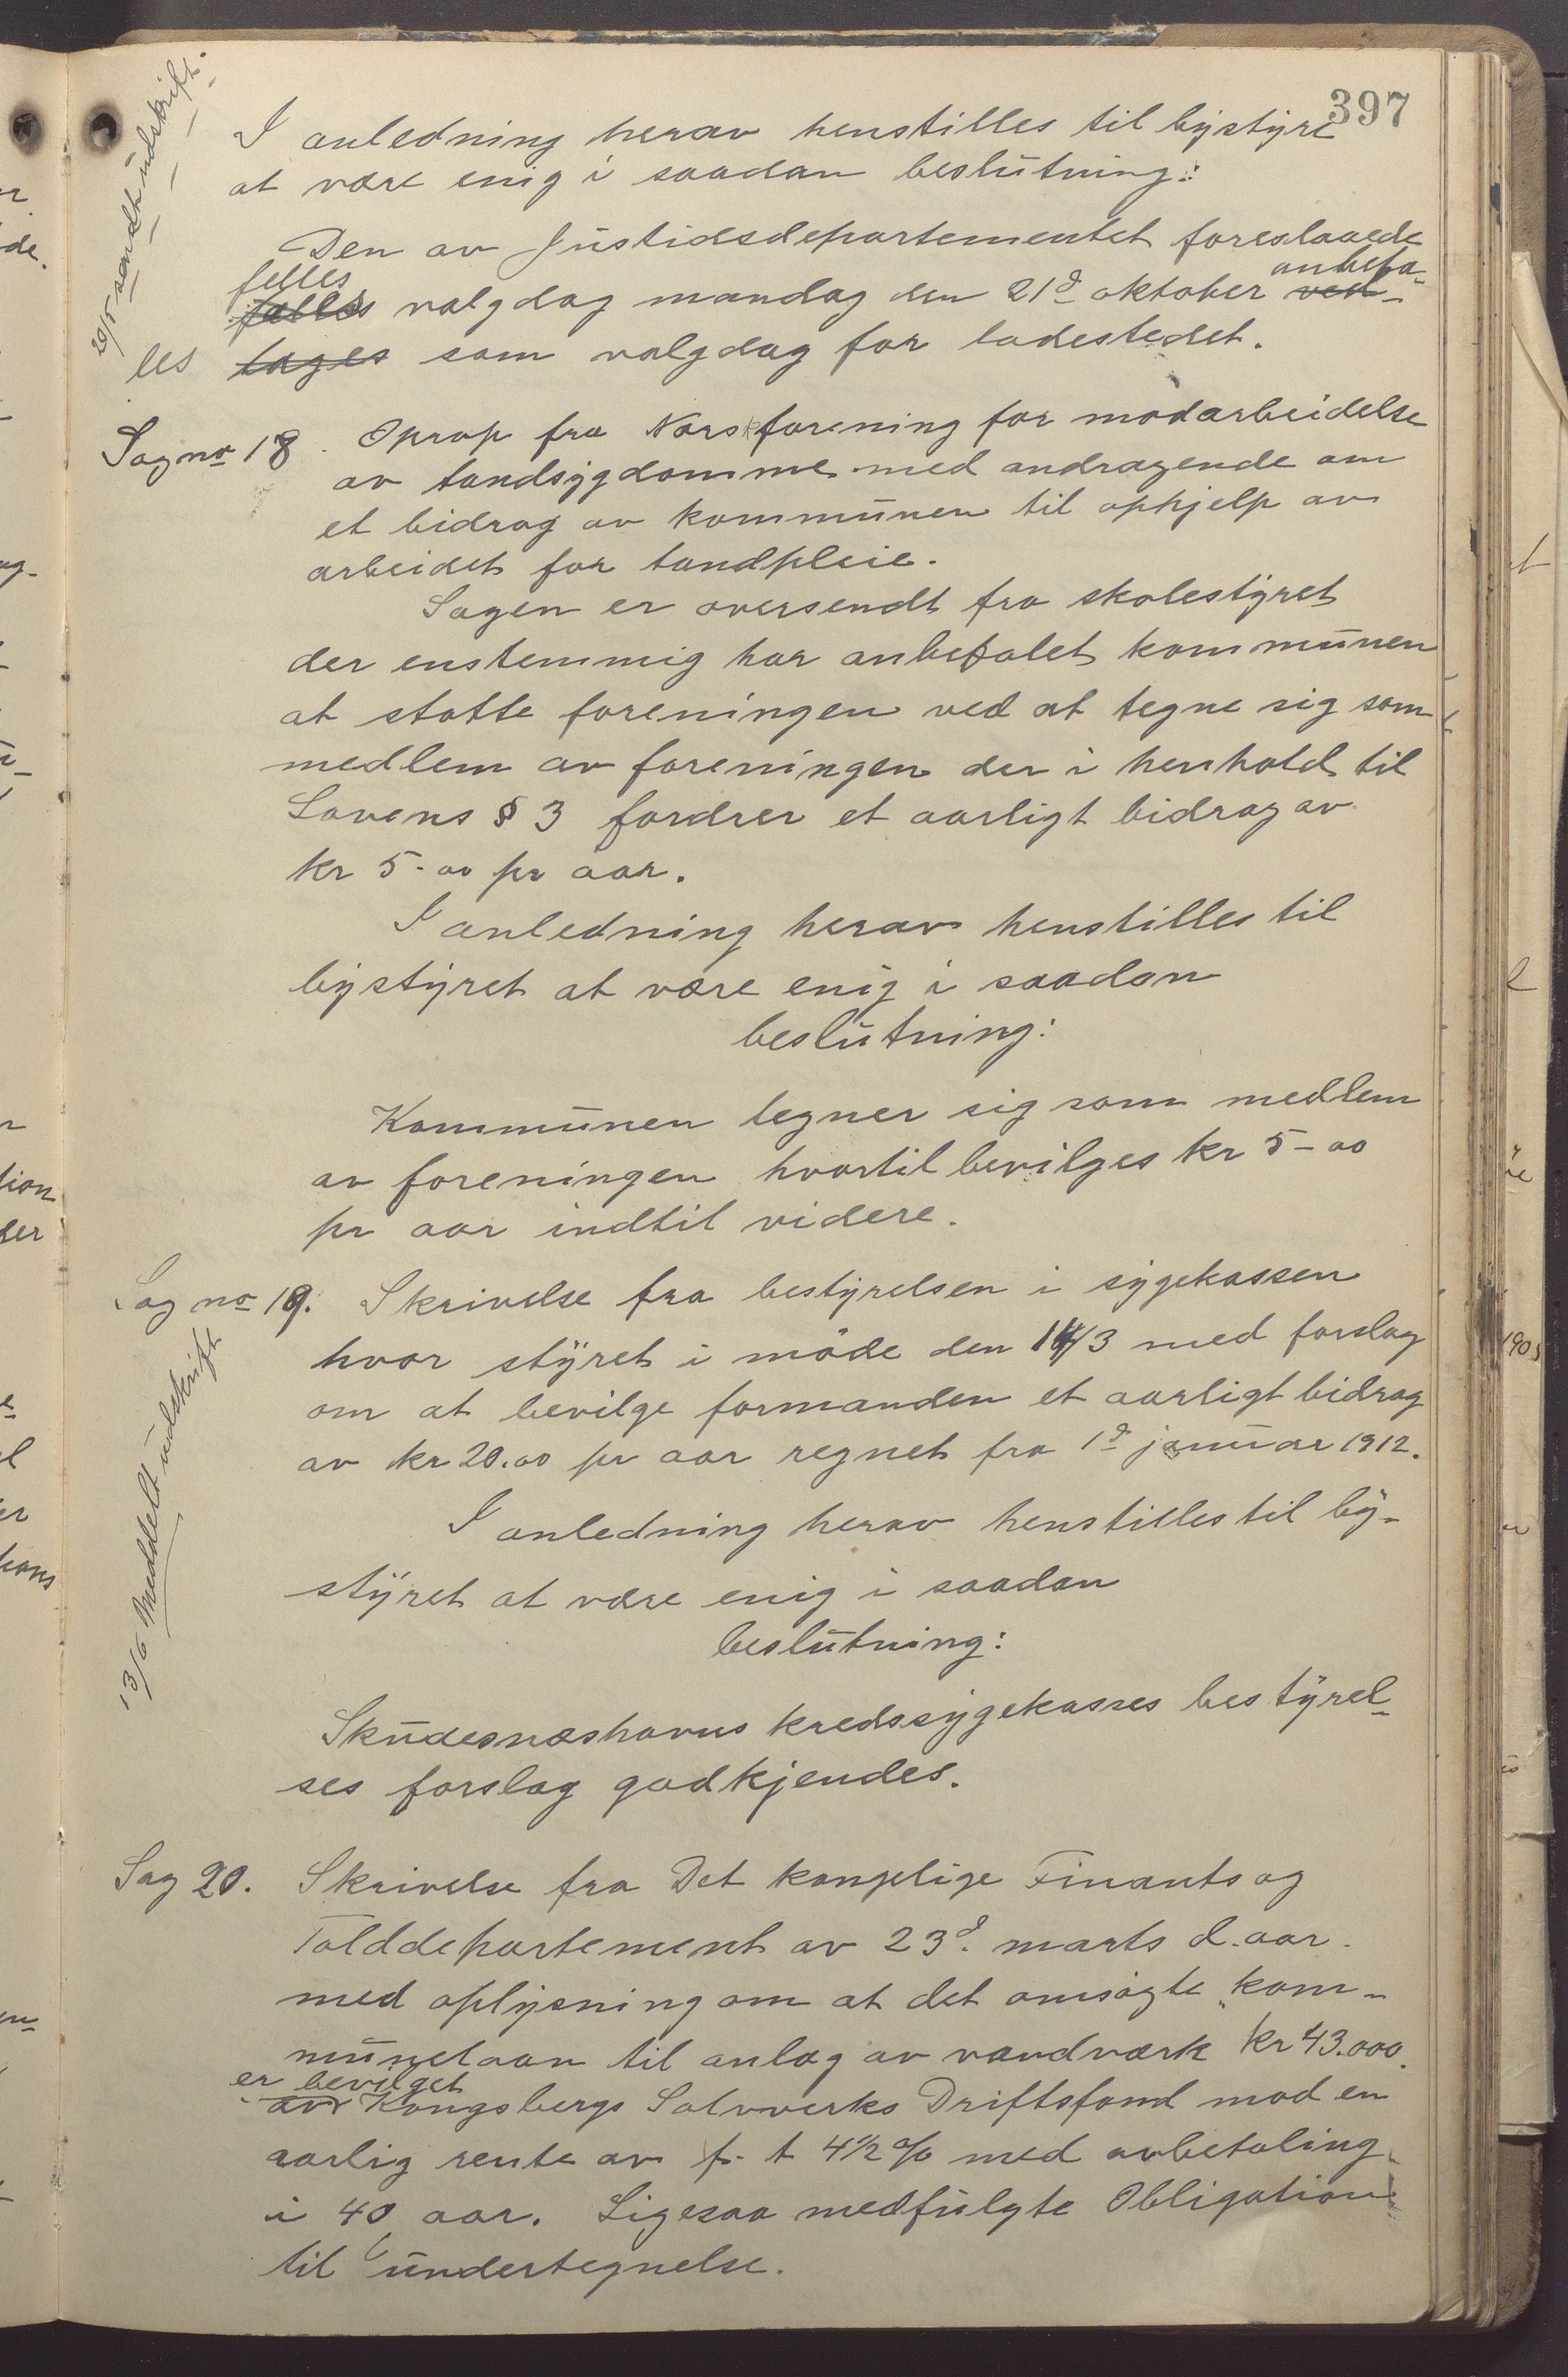 397
I anledning herav henstilles til bystyre
at være enig i saadan beslutning:
20/5 sendt udskrift.
Den av Justidsdepartementet foreslaaede
felles anbefa-
fælles valgdag mandag den 21d oktober ved-
les tages som valgdag for ladestedet.
Sag no 18. Oprop fra Norsk forening for modarbeidelse
av tandsygdomme med andragende om
et bidrag av kommunen til ophjelp av
arbeidet for tandpleie.
Sagen er oversendt fra skolestyret
der enstemmig har anbefalet kommunen
at støtte foreningen ved at tegne sig som
medlem av foreningen der i henhold til
Lovens § 3 fordrer et aarligt bidrag av
kr 5-00 pr aar.
I anledning herav henstilles til
bystyret at være enig i saadan
beslutning:
Kommunen tegner sig som medlem
av foreningen hvortil bevilges kr 5-00
pr aar indtil videre.
Sag no 19. Skrivelse fra bestyrelsen i sygekassen
hvor styret i møde den 14/3 med forslag
om at bevilge formanden et aarligt bidrag
av kr 20.00 pr aar regnet fra 1d januar 1912.
13/6 Meddelt udskrift
I anledning herav henstilles til by-
styret at være enig i saadan
beslutning:
Skudesnæshavns kredssygekasses bestyrel-
ses forslag godkjendes.
Sag 20. Skrivelse fra Det kongelige Finants og
Tolddepartement av 23d. marts d. aar.
med oplysning om at det ansøgte kom-
munelaan til anlæg av vandværk kr 43.000.
er bevilget
av Kongsbergs Sølvverks Driftsfond mod en
aarlig rente av f. t 4 1/2 % med avbetaling
i 40 aar. Ligesaa medfulgte Obligation
til undertegnelse.